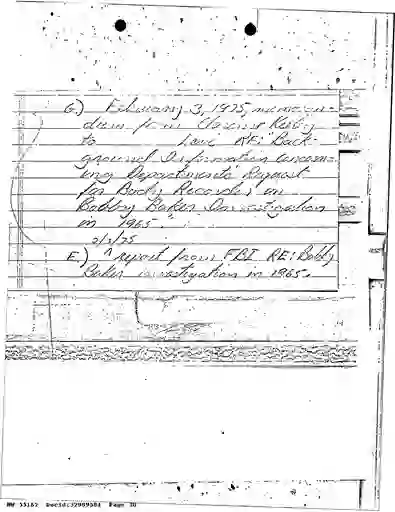 G.) February 3, 1975, memoran-
dum from Clarence Kelley
to have RE: "Back-
ground Information Concern-
ing Department's Request
for Body Recorder in
Bobby Baker Investigation
in 1965".
2/3/75
E.) ^ report from FBI RE: Bobby
Baker investigation in 1965.
NW 55162 DocId:32989581 Page 70